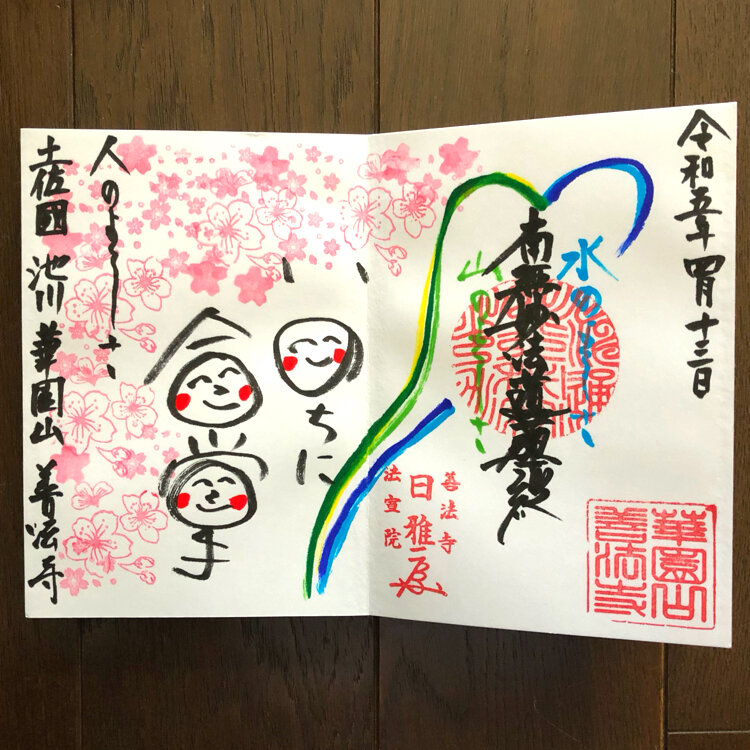 令和五年四月十三日
水のよろしさ
南無妙法蓮華経
山のよろしさ
善法寺
法宣院
日雅
華園山
善法寺
いのちに
合掌
人のよろしさ
土佐國 池川 華園山 善法寺